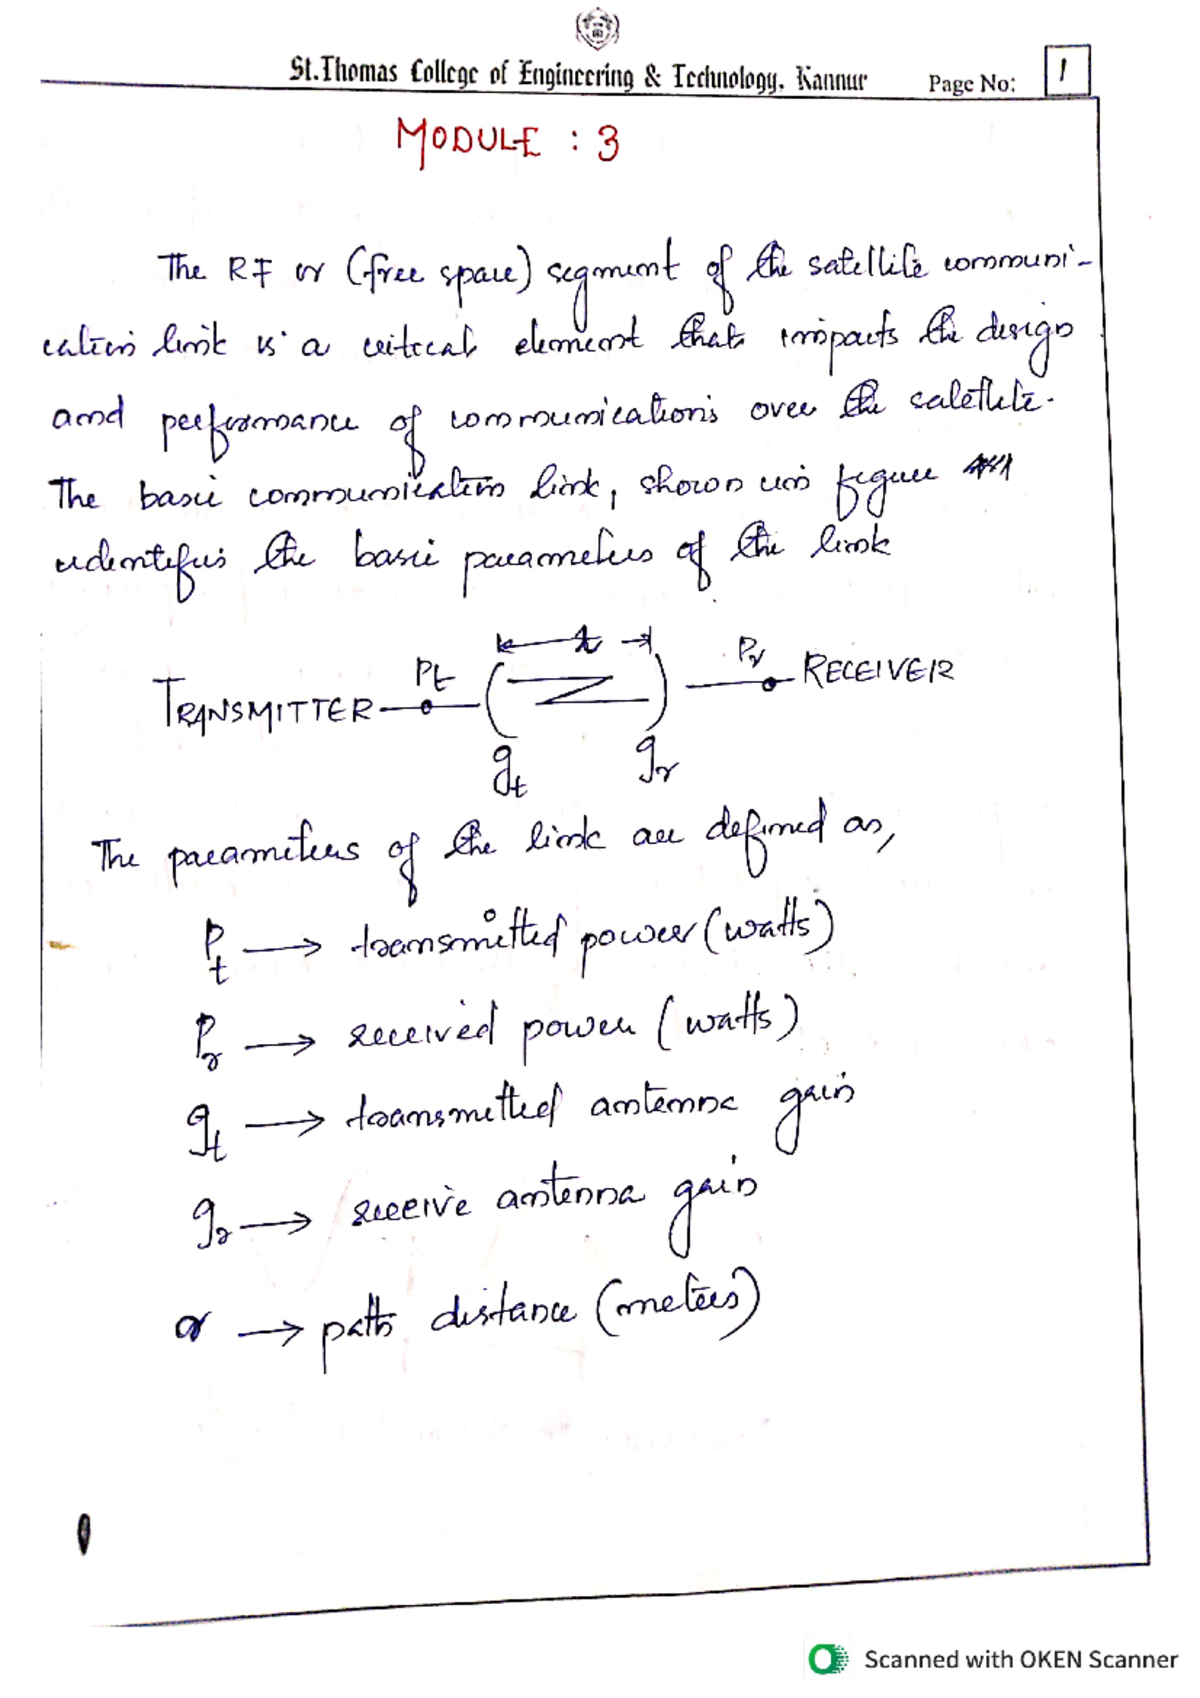 St.Thomas College of Engineering & Technology, Kannur Page No: 1
MODULE : 3
The RF or (free space) segment of the satellite communi-
cation link is a critical element that impacts the design
and performance of communications over the satellite.
The basic communication link, shown in figure
identifies the basic parameters of the link
r
TRANSMITTER Pt Pr RECEIVER
gt gr
The parameters of the link are defined as,
Pt → transmitted power (watts)
Pr → received power (watts)
gt → transmitted antenna gain
gr → receive antenna gain
r → path distance (meters)
Scanned with OKEN Scanner